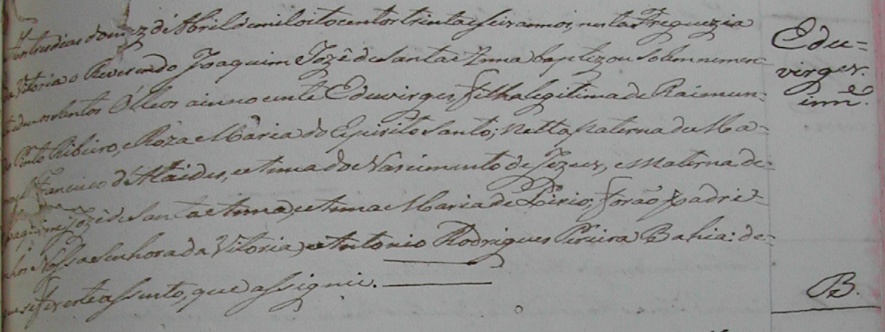 tres dias do mez de Abril de mil oito centos trinta e seis annos, nesta Freguezia
da Vitoria o Reverendo Joaquim Jozé de Santa Anna baptizou solemnemen=
Santos Oleos a innocente Eduvirges, filha legitima de Raimun=
Pinto Ribeiro, e Roza Maria do Espirito Santo; Netta Materna de Ma=
Francisco de Ataides, e Anna do Nascimento de Jezus, e Materna de
Jozé de Santa Anna, e Anna Maria de forão padri=
nhos Nossa Senhora da Vitoria, e Antonio Rodrigues Pereira Bahia: de
que fiz este assento, que assignei.
Edu=
virges
inn.e
B.